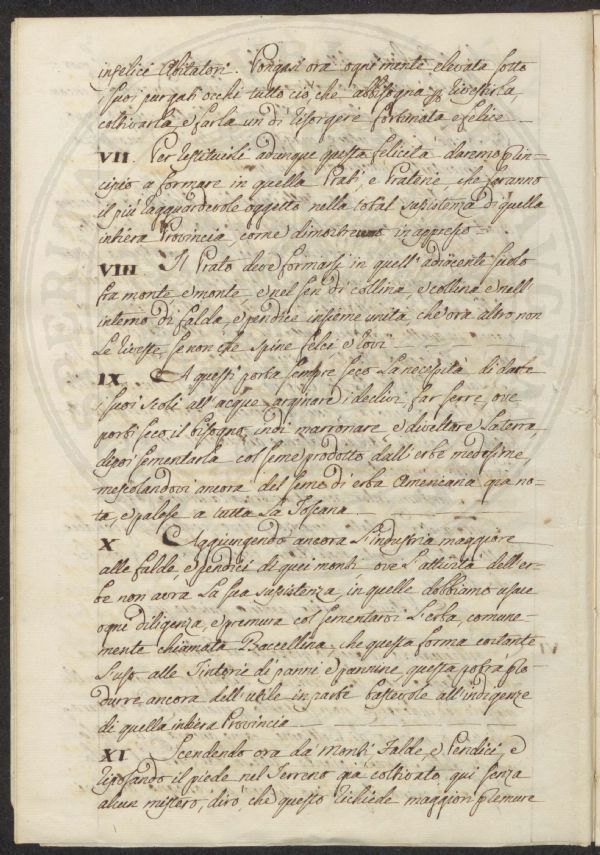 infelici Abitatori. Pongasi ora ogni mente elevata sotto
i suoi purgati occhi tutto ciò, che abbisogna p rivestirla,
coltivarla, e farla un dì risorgere fortunata e felice
VII. Per restituirli adunque questa felicità daremo prin-
cipio a formare in quella Prati, e Praterie che faranno
il più ragguardevole oggetto nella total sussistenza di quella
intiera Provincia, come dimostremo in appresso
VIII Il Prato deve formarsi in quell' adiacente suolo
fra monte, e monte, e nel sen di collina, e collina e nell
interno di falda, e pendice insieme unita che ora altro non
le riveste, se non che spine felci e rovi
IX. A questi porta sempre seco la necessità di darle
i suoi scoli all' acque, arginare i declivi, far serre, ove
porti seco il bisogno, indi marronare, e divettare la terra,
dipoi sementarla col seme prodotto dall' erbe medesime,
mescolandovi ancora del seme di erba Americana già no-
ta, e palese a tutta la Toscana
X Aggiungendo ancora l'industria maggiore
alle falde, e pendici di quei monti ove l'attività dell' er-
be non avrà la sua sussistenza, in quelle dobbiamo usare
ogni diligenza, e premura col sementarvi l'erba, comune-
mente chiamata Baccellina, che questa forma costante
l'uso alle Tintorie di panni e pannine, questa potrà pro-
durre ancora dell' utile in parte bastevole all' indigenze
di quella intiera Provincia
XI Scendendo ora da monti Falde, e Pendici, e
riposando il piede nel Terreno già coltivato, qui senza
alcun mistero, dirò, che questo richiede maggiori premure